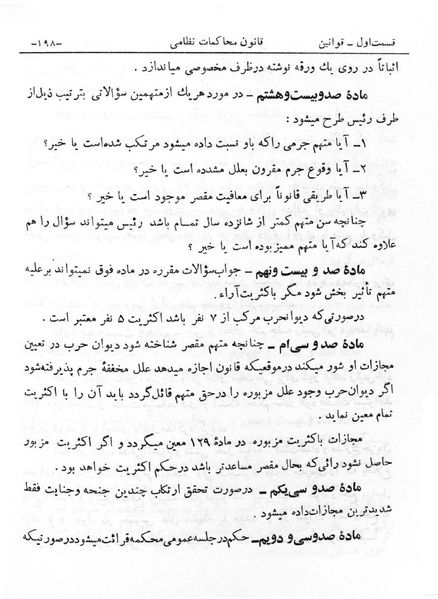 قسمت اول ـ قوانین
قانون محاکمات نظامی
-۱۹۸-
اثباتاً در روی یك ورقه نوشته در ظرف مخصوصی میاندازد .
مادهٔ صد و بیست و هشتم ـ در مورد هر یك از متهمین سؤالاتی بترتیب ذیل از
طرف رئیس طرح میشود :
۱ـ آیا متهم جرمی را که باو نسبت داده میشود مرتکب شده است یا خیر؟
۲ـ آیا وقوع جرم مقرون بعلل مشدده است یا خیر؟
۳ـ آیا طریقی قانوناً برای معافیت مقصر موجود است یا خیر ؟
چنانچه سن متهم کمتر از شانزده سال تمام باشد رئیس میتواند سؤال را هم
علاوه کند که آیا متهم ممیز بوده است یا خیر ؟
مادهٔ صد و بیست و نهم ـ جواب سؤالات مقرره در ماده فوق نمیتواند بر علیه
متهم تأثیر بخش شود مگر باکثریت آراء .
در صورتی که دیوان حرب مرکب از ۷ نفر باشد اکثریت ۵ نفر معتبر است .
مادهٔ صد و سی‌ام ـ چنانچه متهم مقصر شناخته شود دیوان حرب در تعیین
مجازات او شور میکند در موقعیکه قانون اجازه میدهد علل مخففهٔ جرم پذیرفته شود
اگر دیوان حرب وجود علل مزبوره را در حق متهم قائل گردد باید آن را با اکثریت
تمام معین نماید .
مجازات باکثریت مزبوره در مادهٔ ۱۲۹ معین میگردد و اگر اکثریت مزبور
حاصل نشود رائی که بحال مقصر مساعدتر باشد در حکم اکثریت خواهد بود .
مادهٔ صد و سی‌یکم ـ در صورت تحقق ارتکاب چندین جنحه و جنایت فقط
شدیدترین مجازات داده میشود .
مادهٔ صد و سی و دویم ـ حکم در جلسه عمومی محکمه قرائت میشود در صورتیکه